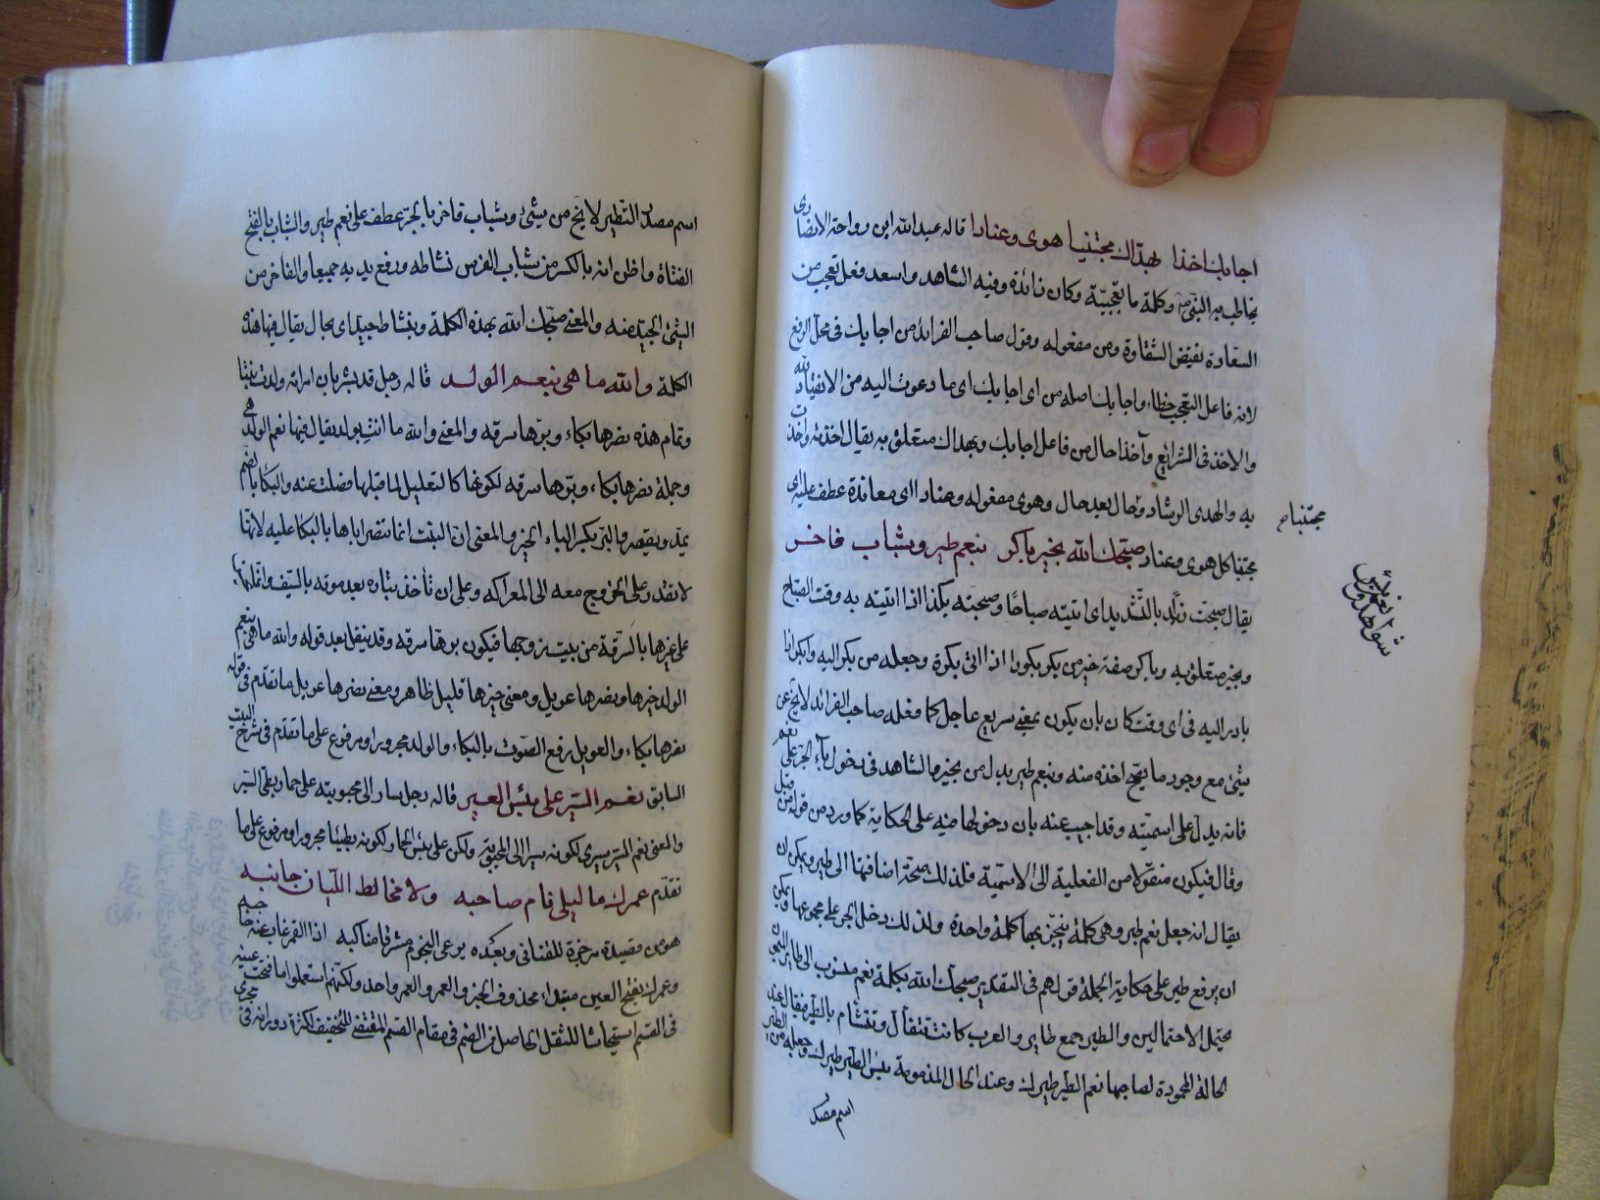 اجابك اخذا بهداك مجتنبا هوى وعنادا قاله عبد الله ابن رواحة الانصارى
يخاطب به النبى وكلمة ما تعجبية وكان زائدة وفيه الشاهد واسعد فعل تعجب من
السعادة نقيض الشقاوة ومن مفعوله وقول صاحب الفرائد من اجابك فى محل الرفع
لانه فاعل التعجب خطاء واجابك اصله من اى اجابك اى ما دعوت اليه من الانقياد لله
والاخذ فى الشرائع وآخذا حال من فاعل اجابك وبهداك متعلق به يقال اخذته واخذت
به والهدى الرشاد وحال بعد حال وهوى مفعوله وعنادا اى معاندة عطف عليه اى
مجتنبا م
مجتنبا كل هوى وعناد صبحك الله بخير باكر بنعم طير وشباب فاخر
شواهد نعم وبئس
يقال صبحت زيدا بالتشديد اى اتيته صباحا وصبحته بكذا اذا اتيته به وقت الصباح
وبخير متعلق به وباكر صفة خير من بكر بكورا اذا اتى بكرة وجعله من بكر اليه وابكر اذا
بادر اليه فى اى وقت كان بان يكون بمعنى سريع عاجل كما فعله صاحب الفرائد لا يخ عن
شئ مع وجود ما يصح اخذه منه وبنعم طير بدل من بخير والشاهد فى دخول باء الجر على نعم
فانه يدل على اسميته وقد اجيب عنه بان دخولها فيه على الحكاية كما ورد من قوله من قيل
وقال فيكون منقولا من الفعلية الى الاسمية فلذلك صحة اضافتها الى طير ويمكن ان
يقال انه جعل نعم طير وهى كلمة يتيمن بها كلمة واحدة ولذلك دخل الجر على مجموعها ويمكن
ان يرفع طير على حكاية الجملة قولهم فى التقدير صبحك الله بكلمة نعم منسوب الى طائر
يحتمل الاحتمالين والطير جمع طاير والعرب كانت تتفأل وتتشأم بالطير فيقال عند
الحالة المحمودة لصاحبها نعم الطير طيرك وعند الحال المذمومة بئس الطير طيرك وجعله من الطير
اسم مصدر
اسم مصدر التطير لا يخ من شئ وشباب فاخر بالجر عطف على نعم طير والشباب بالفتح
الفتاة واظن انه بالكسر من شباب الفرس نشاطه ورفع يديه جميعا والفاخر من
الشئ الجيد منه والمعنى صبحك الله بهذه الكلمة وبنشاط جيد اى بحال يقال فيها هذه
الكلمة والله ما هى بنعم الولد قاله رجل قد بشر بان امرأته ولدت بنتا
وتمام هذه نصرها بكاء وبرها سرقه والمعنى والله ما انت بولد يقال فيها نعم الولد هى
وجملة نصرها بكاء وبرها سرقه لكونها كالتعليل لما قبلها فصلت عنه والبكا بالضم
يمد ويقصر والبر بكسر الباء الخير والمعنى ان البنت انما تنصر اباها بالبكا عليه لانها
لا تقدر على الخروج معه الى المعراكه وعلى ان تأخذ بثاره بعد موته بالسيف وانما برها
على غيرها بالسرقة من بيت زوجها فيكون برها سرقه وقد ينقل بعد قوله والله ما هى بنعم
الولد خيرها ونصرها عويل ومعنى خيرها قليل ظاهر ومعنى نصرها عويل ما تقدم فى قوله
نصرها بكاء والعويل رفع الصوت بالبكاء والولد مجرور او مرفوع على ما تقدم فى شرح البيت
السابق نعم السير على بئس العير قاله رجل سار الى محبوبته على حمار بطئ السير
والمعنى نعم السير سيرى لكونه سيرا الى المحبوبة ولكن على بئس الحمار لكونه بطيئا مجرور او مرفوع على ما
تقدم عمرك ما ليلى نام صاحبه ولا مخالط الليان جانبه
هو من قصيدة مرجزة للقنانى وبعده يرعى النجوم مشرفا مناكبه اذا القمر غاب عنه حاجبه
وعمرك بفتح العين مبتداء محذوف الخبر والعمر والعمر واحد ولكنهم استعملوا ما فتحت عينه
فى القسم استيحاشا للثقل الحاصل من الضم فى مقام القسم المقتضى للتخفيف لكثرة دورانه فى مجرى